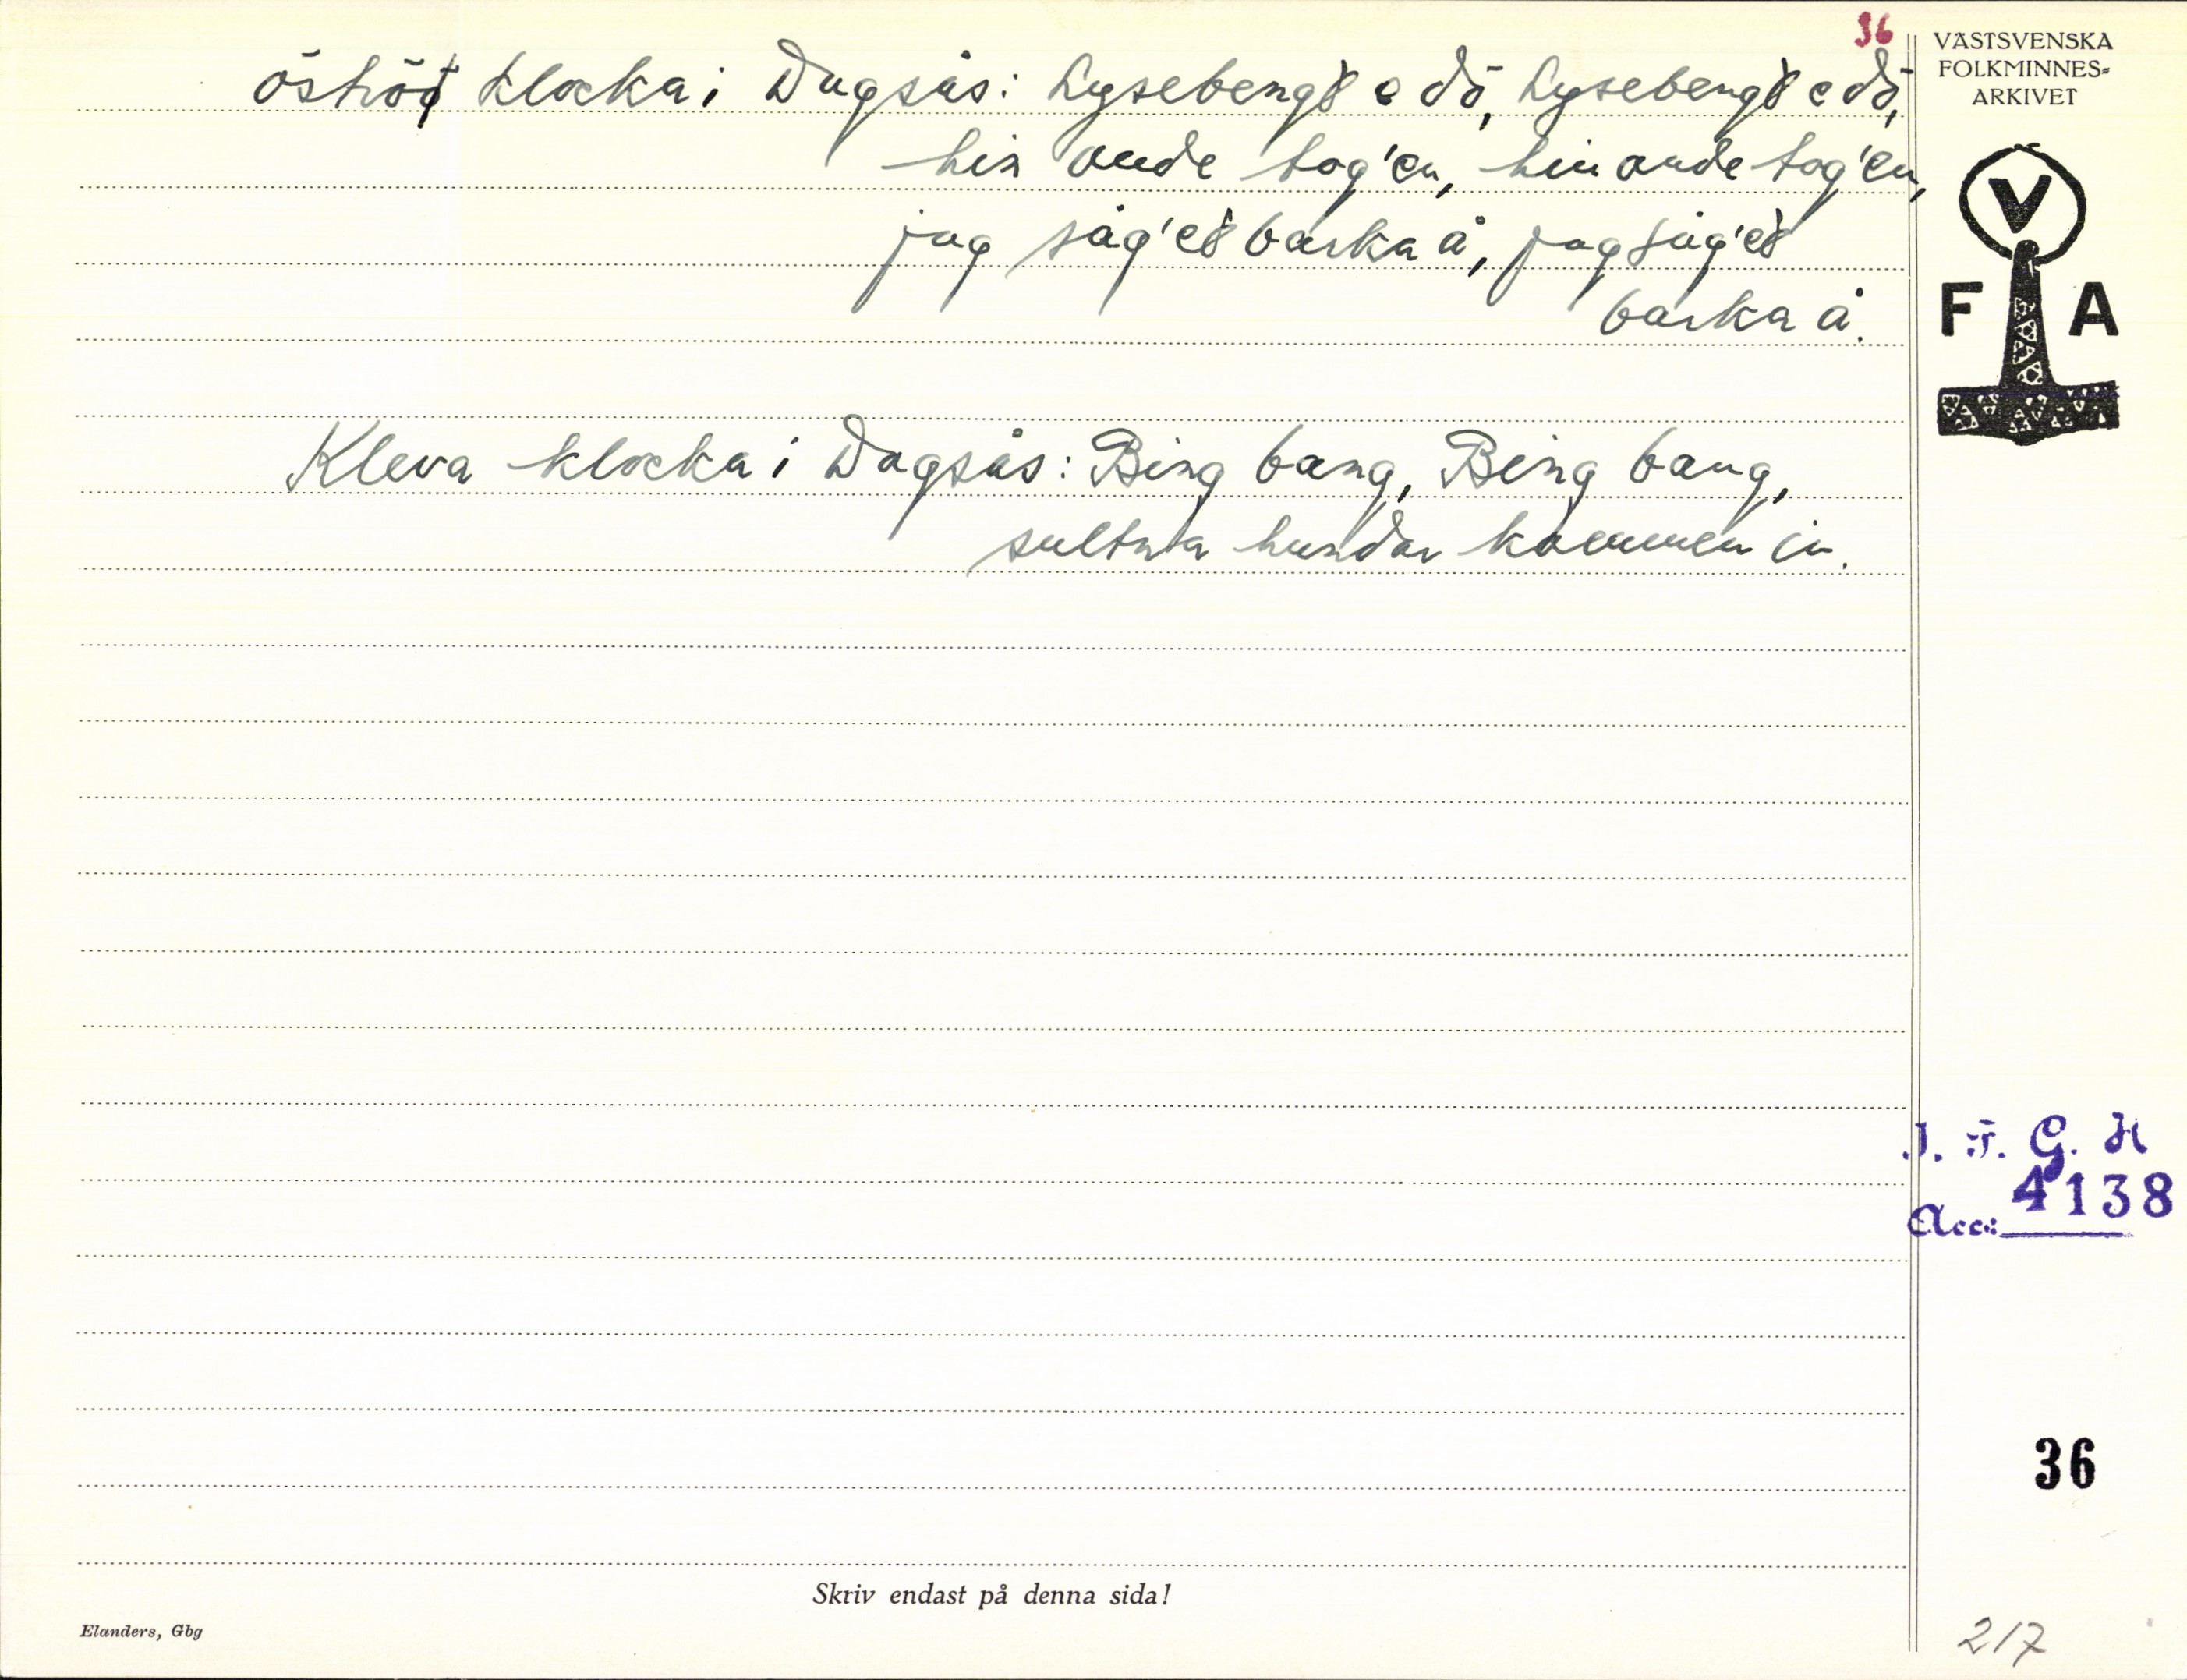 36
klocka i Dagsås: Lysebengt e dö, Lysebengt e dö,
hin onde tog'en, hin onde tog'en,
jag såg'et barka å, jag såg'et
barka å.
Kleva klocka i Dagsås: Bing bang, Bing bang,
sultna hundar kommen in.
VÄSTSVENSKA
FOLKMINNES-
ARKIVET
V
F A
I. F. G. H
4138
Acc:
36
Skriv endast på denna sida!
Elanders, Gbg
217